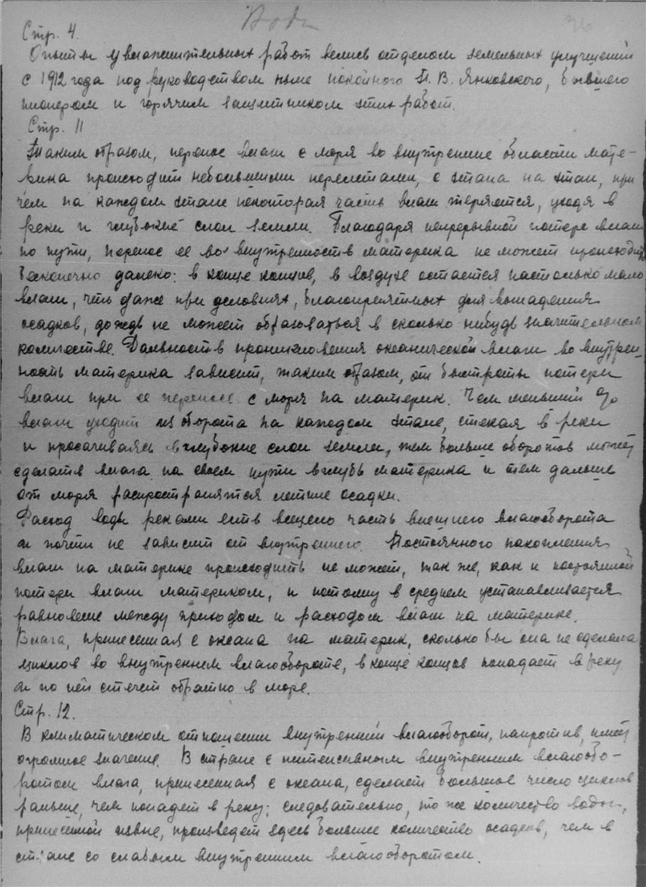 Вода
Стр. 4.
Опыты увлажнительных работ велись отделом земельных улучшений
с 1912 года под руководством ныне покойного П. В. Янковского, бывшего
пионером и горячим защитником этих работ.
Стр. 11
Таким образом, перенос влаги с моря во внутренние области мате-
рика происходит небольшими перелетами, с этапа на этап, при
чем на каждом этапе некоторая часть влаги теряется, уходя в
реки и глубокие слои земли. Благодаря непрерывной потере влаги
по пути, перенос ее во внутренность материка не может происходить
бесконечно далеко: в конце концов, в воздухе остается настолько мало
влаги, что даже при условиях, благоприятных для выпадения
осадков, дождь не может образоваться в сколько нибудь значительном
количестве. Дальность проникновения океанической влаги во внутрен-
ность материка зависит, таким образом, от быстроты потери
влаги при ее переносе с моря на материк. Чем меньший %
влаги уходит из оборота на каждом этапе, стекая в реки
и просачиваясь в глубокие слои земли, тем больше оборотов может
сделать влага на своем пути вглубь материка и тем дальше
от моря распространятся летние осадки.
Расход воды реками есть всецело часть внешнего влагооборота
и почти не зависит от внутреннего. Постоянного накопления
влаги на материке происходить не может, так же, как и постоянной
потери влаги материком, и потому в среднем устанавливается
равновесие между приходом и расходом влаги на материке.
Влага, принесенная с океана на материк, сколько бы она не сделала
циклов во внутреннем влагообороте, в конце концов попадает в реку
и по ней стечет обратно в море.
Стр. 12.
В климатическом отношении внутренний влагооборот, напротив, имеет
огромное значение. В стране с интенсивным внутренним влагообо-
ротом влага, принесенная с океана, сделает большое число циклов
раньше, чем попадет в реку; следовательно, то же количество воды,
принесенной извне, произведет здесь большее количество осадков, чем в
стране со слабым внутренним влагооборотом.